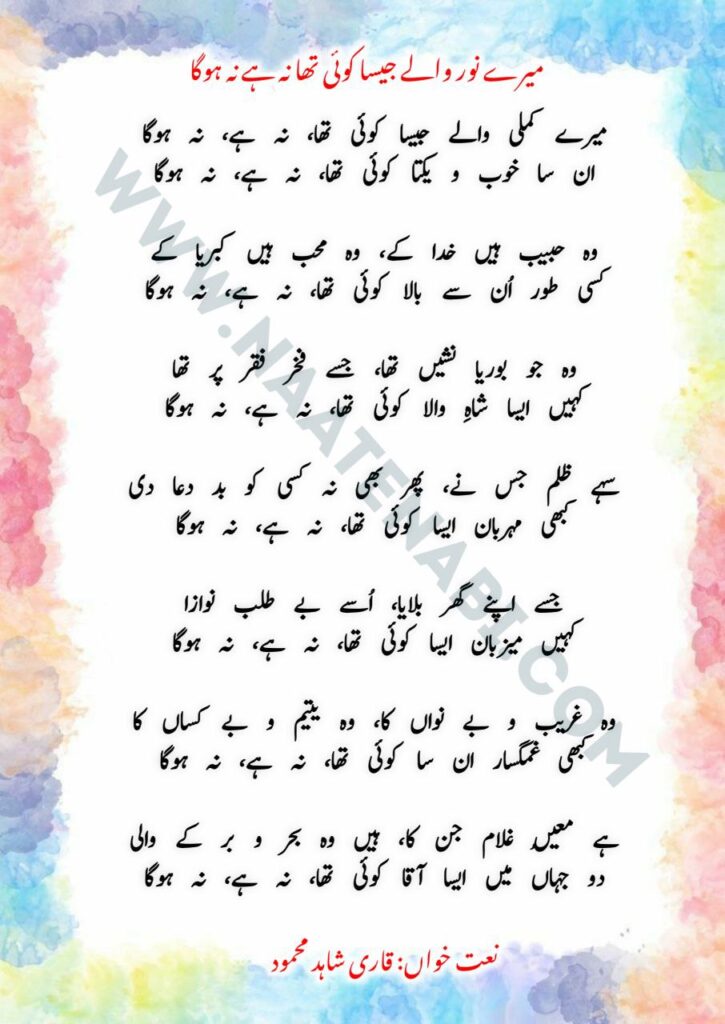 میرے نور والے جیسا کوئی تھا نہ ہے نہ ہوگا
میرے کملی والے جیسا کوئی تھا، نہ ہے، نہ ہوگا
ان سا خوب و یکتا کوئی تھا، نہ ہے، نہ ہوگا
وہ حبیب ہیں خدا کے، وہ محب ہیں کبریا کے
کسی طور اُن سے بالا کوئی تھا، نہ ہے، نہ ہوگا
وہ جو بوریا نشیں تھا، جسے فخر فقر پر تھا
کہیں ایسا شاہِ والا کوئی تھا، نہ ہے، نہ ہوگا
سہے ظلم جس نے، پھر بھی نہ کسی کو بد دعا دی
کبھی مہربان ایسا کوئی تھا، نہ ہے، نہ ہوگا
جسے اپنے گھر بلایا، اُسے بے طلب نوازا
کہیں میزبان ایسا کوئی تھا، نہ ہے، نہ ہوگا
وہ غریب و بے نواں کا، وہ یتیم و بے کساں کا
کبھی غمگسار ان سا کوئی تھا، نہ ہے، نہ ہوگا
ہے معیںؔ غلام جن کا، ہیں وہ بحر و بر کے والی
دو جہاں میں ایسا آقا کوئی تھا، نہ ہے، نہ ہوگا
نعت خواں: قاری شاہد محمود
WWW.NAATENABI.COM